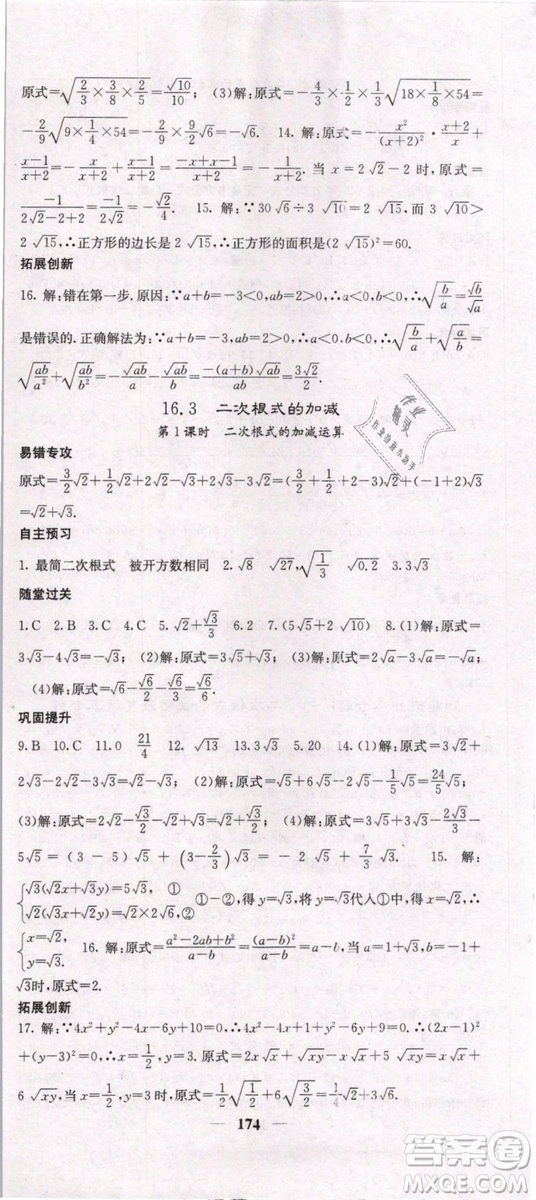 原式=√(2/3×3/8×2/5)=√10/10; (3)解:原式=-4/3×1/2×√(18×1/8×54)=
-2/9√(9×1/4×54)=-2/9×9/2√6=-√6. 14. 解:原式=-x²/(x+2)²·(x+2)/x+
(x-1)/(x+2)=-x/(x+2)+(x-1)/(x+2)=(-x+x-1)/(x+2)=-1/(x+2). 当 x=2√2-2 时,原式=
-1/(2√2-2+2)=-1/(2√2)=-√2/4. 15. 解:∵30√6÷3=2√15,而 3√10>
2√15,∴正方形的边长是 2√15,∴正方形的面积是(2√15)²=60.
拓展创新
16. 解:错在第一步. 原因:∵a+b=-3<0,ab>0,∴a<0,b<0,∴√(b/a)=√b/√a
是错误的. 正确解法为:∵a+b=-3,ab>0,∴a<0,b<0,∴√(b/a)+√(a/b)=
√(ab/a²)+√(ab/b²)=-√ab/a-√ab/b=-(a+b)√ab/ab=3√2/2.
16.3 二次根式的加减
第1课时 二次根式的加减运算
易错专攻
原式=3/2√2+1/2√2-√3+2√2+2√3-3√2=(3/2+1/2+2-3)√2+(-1+2)√3
=√2+√3.
自主预习
1. 最简二次根式 被开方数相同 2. √8 √27,√(1/3) √0.2 3. 3√3
随堂过关
1. C 2. B 3. C 4. C 5. √2+√3/3 6. 2 7. (5√5+2√10) 8. (1)解:原式=
3√3-4√3=-√3; (2)解:原式=√3+2√3=3√3; (3)解:原式=2√a-3√a=-√a;
(4)解:原式=√6-√6/2-√6/3=√6/6.
巩固提升
9. B 10. C 11. 0 21/4 12. √13 13. 3√2 5. 20 14. (1)解:原式=3√2+
2√3-2√2-3√3=√2-√3; (2)解:原式=√5+6√5-2√5-1/5√5=24/5√5;
(3)解:原式=2√2+√3/2-√2/2-√2+√3=√2/2+3√3/2; (4)解:原式=3√5+3√3-2√3/3-
5√5=(3-5)√5+(3-2/3)√3=-2√5+7/3√3. 15. 解:
{√3(√2x-√3y)=√3, ①
√2(√2x-√3y)=√2x-√5y, ② ①-②,得 y=√3,将 y=√3代人①中,得 x=√2,∴
{x=√2,
y=√3. 16. 解:原式=(a²-2ab+b²)/(a-b)=(a-b)²/(a-b)=a-b,当 a=√3+1,b=-1+
√3时,原式=2.
拓展创新
17. 解:∵4x²+y²-4x-6y+10=0,∴4x²-4x+1+y²-6y+9=0,∴(2x-1)²
+(y-3)²=0,∴x=1/2,y=3,原式=2x√x+√xy-x√x+5√xy=x√x+
6√xy,当 x=1/2,y=3 时,原式=1/2√(1/2)+6√(3/2)=√2/4+3√6.
174
作业
精灵
答案圈
MXQE.COM